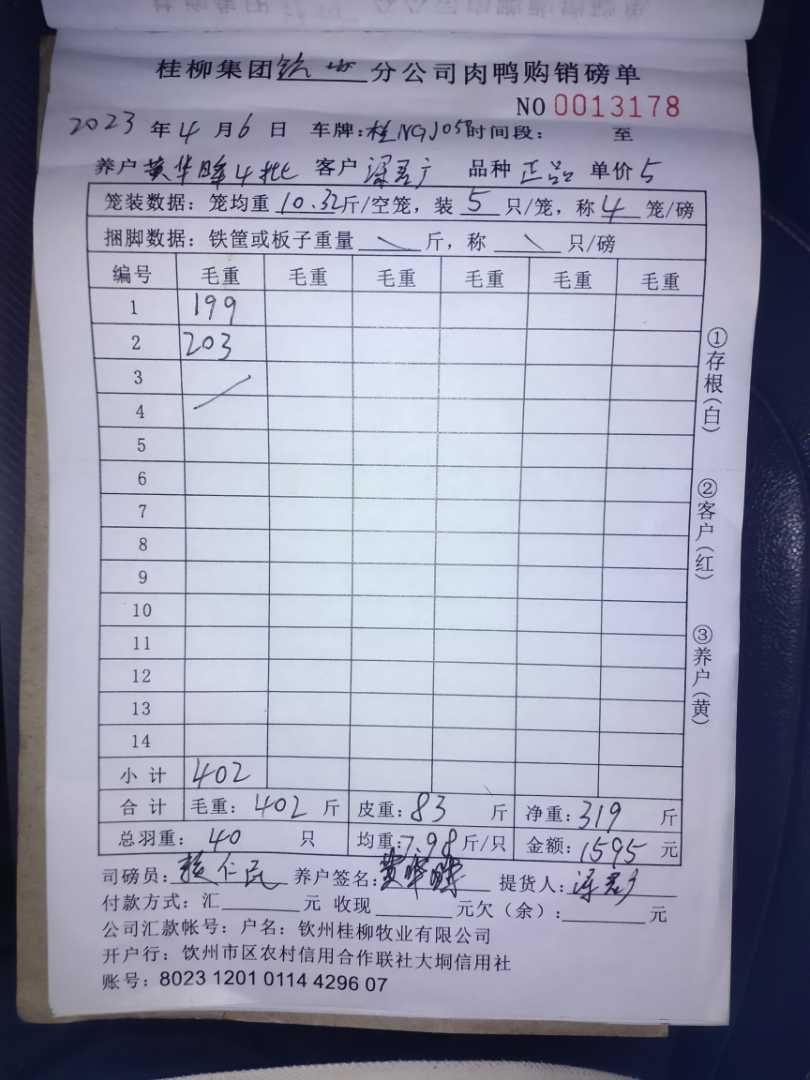 桂柳集团 分公司肉鸭购销磅单
NO 0013178
2023 年 4 月 6 日 车牌: 桂NGJ058 时间段: 至
养户 黄华晖 4批 客户 品种 正品 单价 5
笼装数据: 笼均重 10.32 斤/空笼, 装 5 只/笼, 称 4 笼/磅
捆脚数据: 铁筐或板子重量 \ 斤, 称 \ 只/磅
编号 毛重 毛重 毛重 毛重 毛重 毛重
1 199
2 203
3
4
5
6
7
8
9
10
11
12
13
14
小计 402
合计 毛重: 402 斤 皮重: 83 斤 净重: 319 斤
总羽重: 40 只 均重: 7.98 斤/只 金额: 1595 元
司磅员: 养户签名: 黄华晖 提货人:
付款方式: 汇 元 收现 元欠(余): 元
公司汇款帐号: 户名: 钦州桂柳牧业有限公司
开户行: 钦州市区农村信用合作联社大垌信用社
账号: 8023 1201 0114 4296 07
①存根(白)
②客户(红)
③养户(黄)